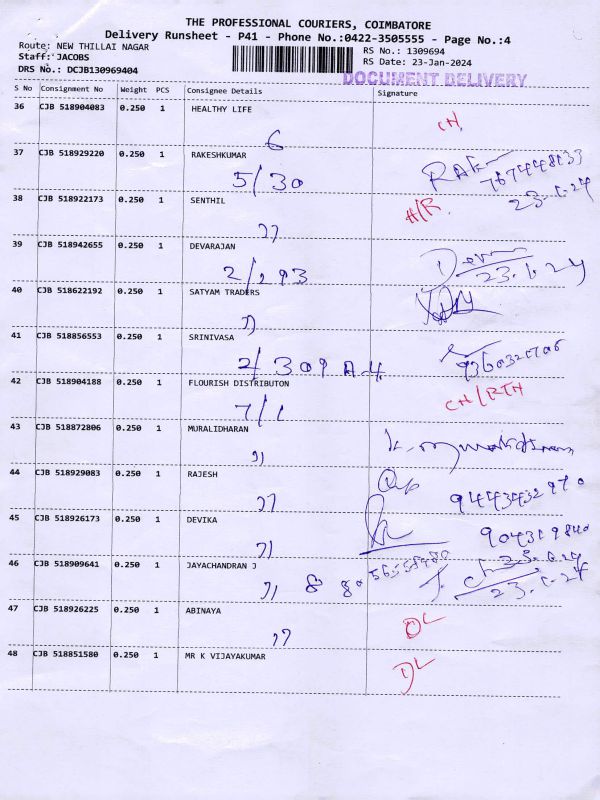 THE PROFESSIONAL COURIERS, COIMBATORE
Delivery Runsheet - P41 - Phone No.:0422-3505555 - Page No.:4
Route: NEW THILLAI NAGAR
RS No.: 1309694
Staff: JACOBS
RS Date: 23-Jan-2024
DRS No.: DCJB130969404
DOCUMENT DELIVERY
S No Consignment No Weight PCS Consignee Details Signature
36 CJB 518904083 0.250 1 HEALTHY LIFE
6
37 CJB 518929220 0.250 1 RAKESHKUMAR
5/30
23.1.24
38 CJB 518922173 0.250 1 SENTHIL
H/R.
39 CJB 518942655 0.250 1 DEVARAJAN
2/293
23.1.24
40 CJB 518622192 0.250 1 SATYAM TRADERS
41 CJB 518856553 0.250 1 SRINIVASA
2/309 A-4
42 CJB 518904188 0.250 1 FLOURISH DISTRIBUTON
7/1
43 CJB 518872806 0.250 1 MURALIDHARAN
44 CJB 518929083 0.250 1 RAJESH
9443432970
45 CJB 518926173 0.250 1 DEVIKA
46 CJB 518909641 0.250 1 JAYACHANDRAN J
23.1.24
47 CJB 518926225 0.250 1 ABINAYA
DL
48 CJB 518851580 0.250 1 MR K VIJAYAKUMAR
DL